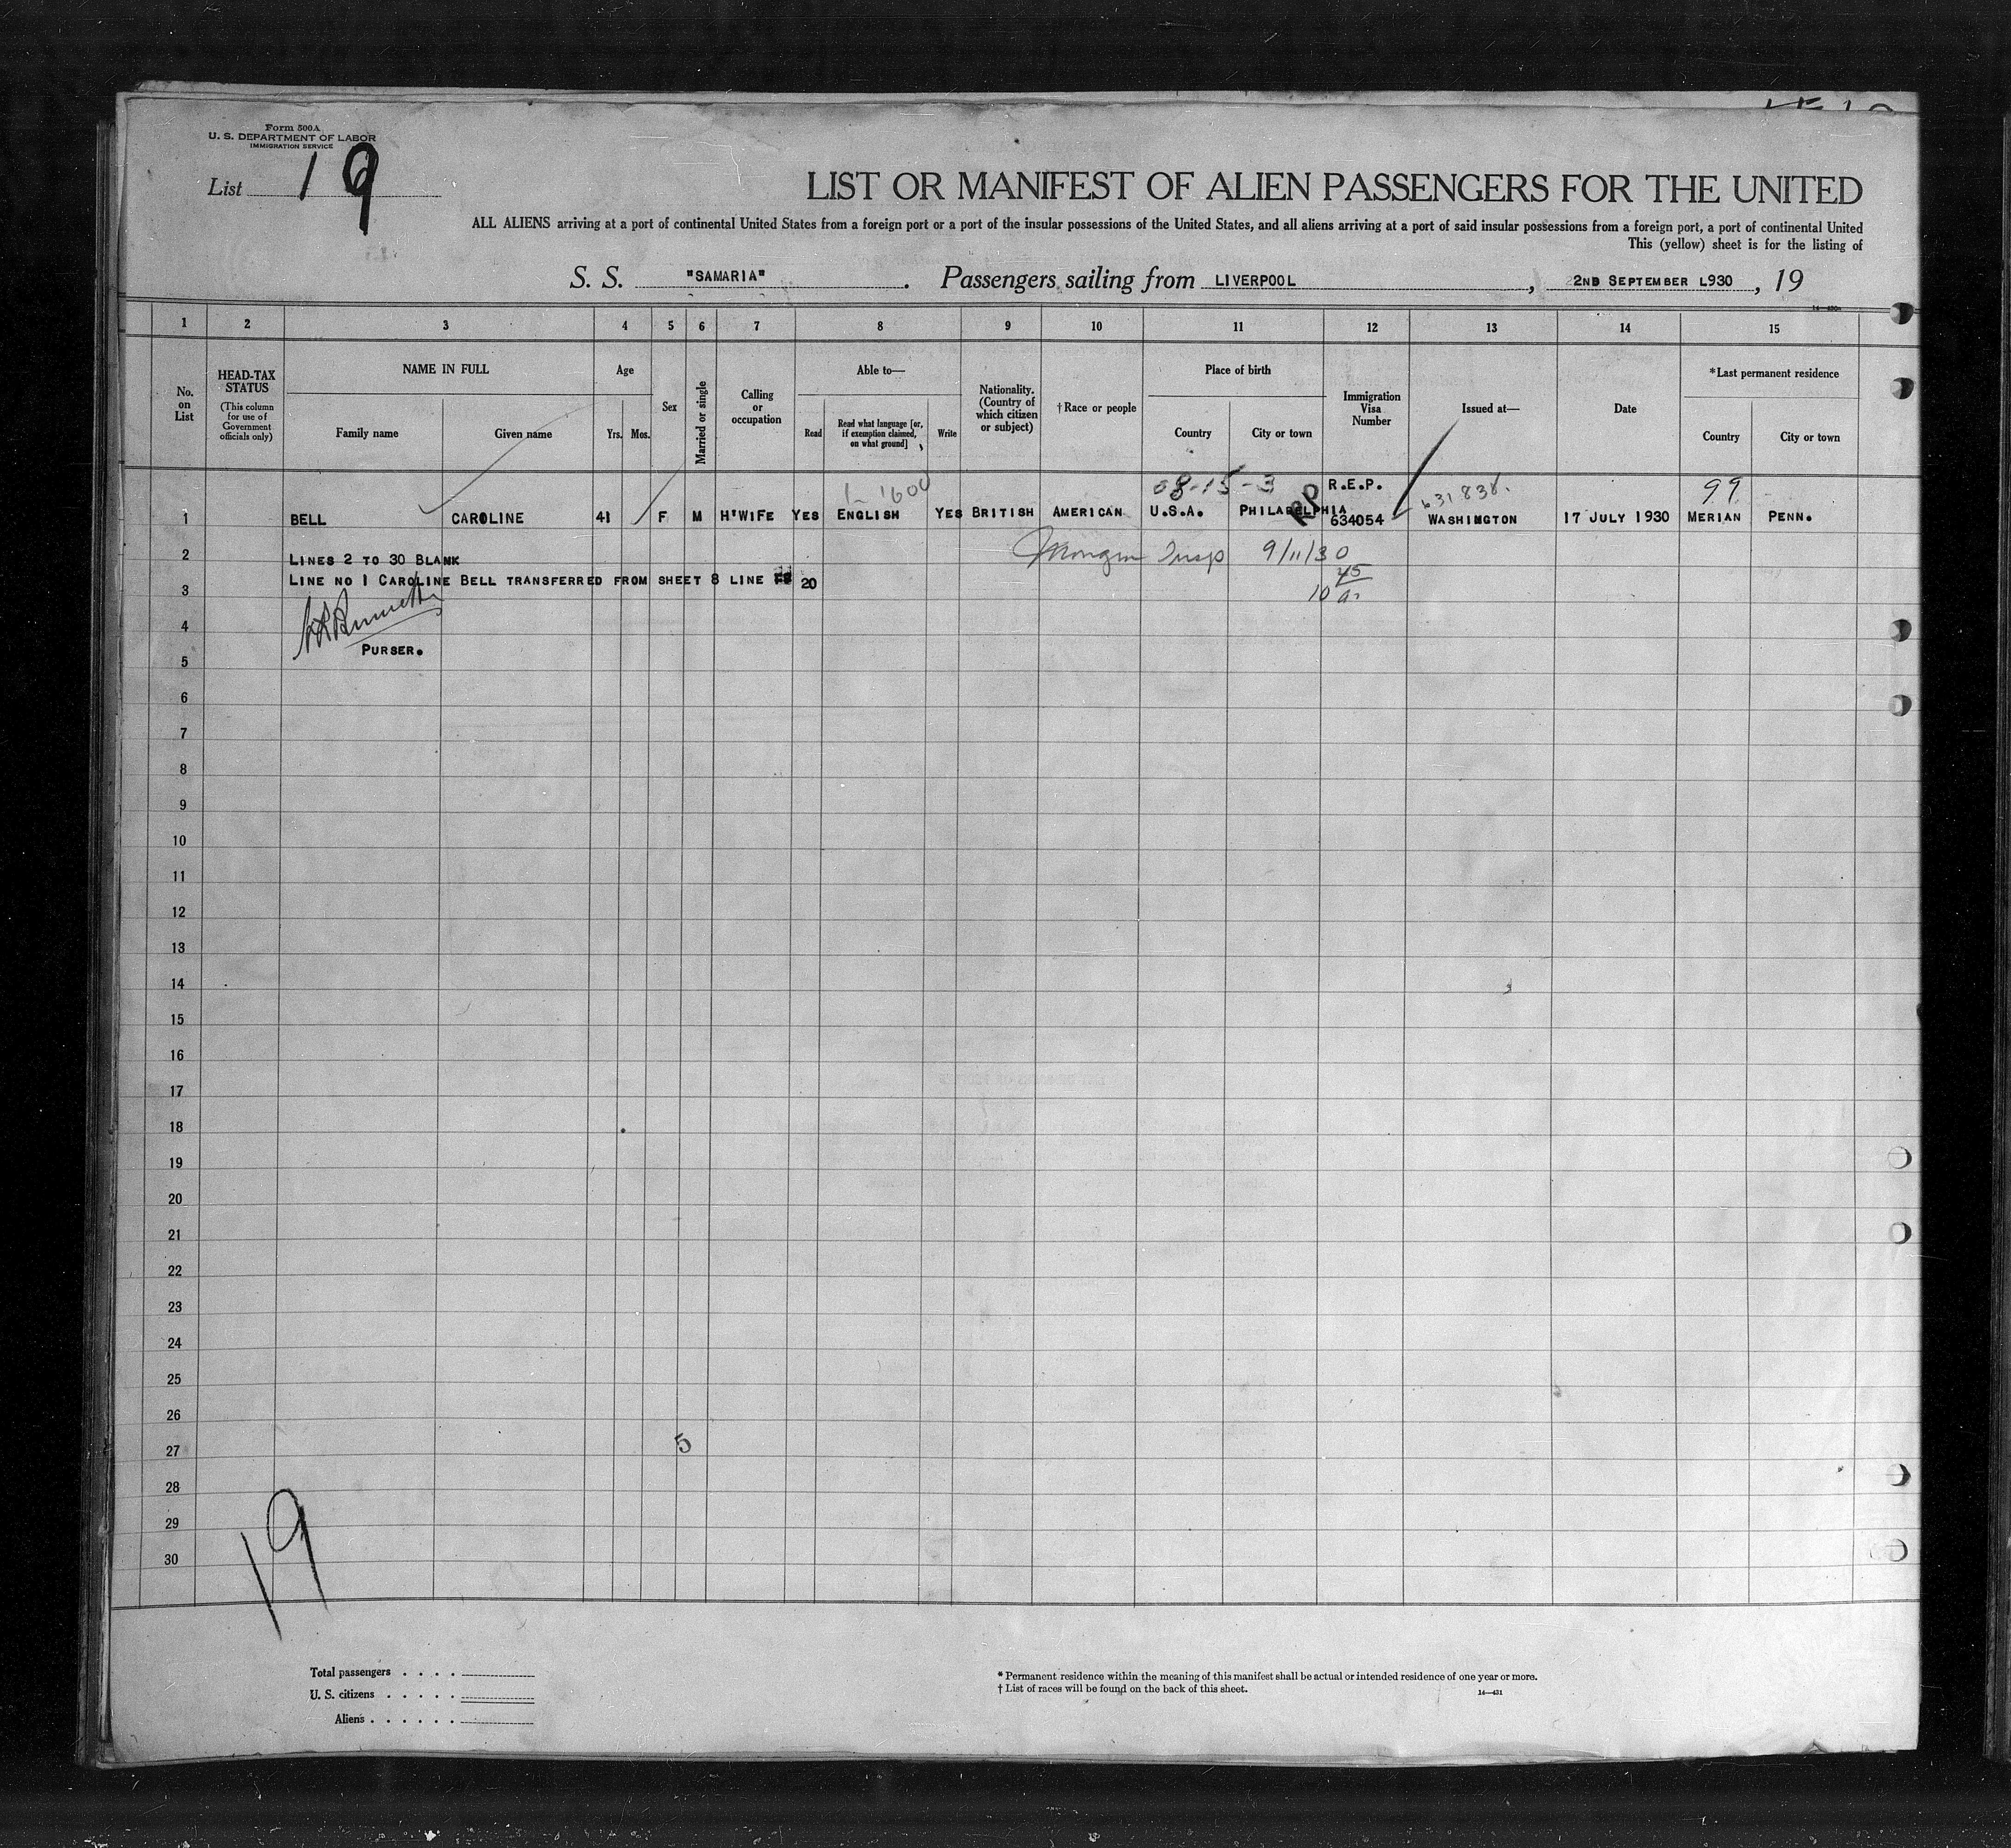 Form 500A
U. S. DEPARTMENT OF LABOR
IMMIGRATION SERVICE
List 19
LIST OR MANIFEST OF ALIEN PASSENGERS FOR THE UNITED
ALL ALIENS arriving at a port of continental United States from a foreign port or a port of the insular possessions of the United States, and all aliens arriving at a port of said insular possessions from a foreign port, a port of continental United
This (yellow) sheet is for the listing of
S. S. "SAMARIA" . Passengers sailing from LIVERPOOL , 2ND SEPTEMBER L930 , 19
14—430a
1 2 3 4 5 6 7 8 9 10 11 12 13 14 15
No. on List
HEAD-TAX STATUS
(This column for use of Government officials only)
NAME IN FULL
Family name Given name
Age
Yrs. Mos.
Sex
Married or single
Calling or occupation
Able to—
Read
Read what language [or, if exemption claimed, on what ground]
Write
Nationality. (Country of which citizen or subject)
†Race or people
Place of birth
Country City or town
Immigration Visa Number
Issued at—
Date
*Last permanent residence
Country City or town
08-15-3 R.E.P. 631838. 99
1 BELL CAROLINE 41 F M H'WIFE YES ENGLISH YES BRITISH AMERICAN U.S.A. PHILADELPHIA 634054 WASHINGTON 17 JULY 1930 MERIAN PENN.
RP
2 LINES 2 TO 30 BLANK
Insp 9/11/30
LINE NO 1 CAROLINE BELL TRANSFERRED FROM SHEET 8 LINE 20
3
10 45 a.
4
PURSER.
5
6
7
8
9
10
11
12
13
14
15
16
17
18
19
20
21
22
23
24
25
26
27
5
28
29
30
19
Total passengers . . . .
U. S. citizens . . . . .
Aliens . . . . . .
* Permanent residence within the meaning of this manifest shall be actual or intended residence of one year or more.
† List of races will be found on the back of this sheet.
14—431